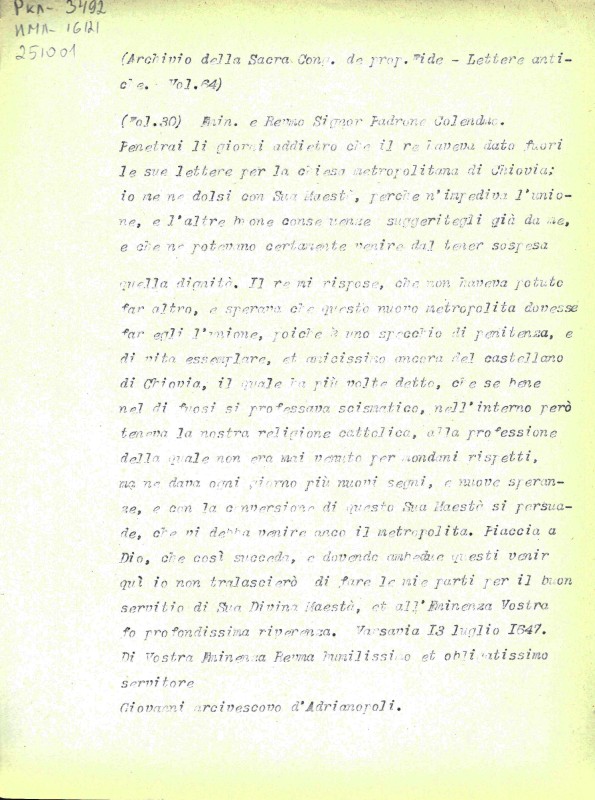 Ркл- 3492
ИМЛ- 16121
251001
(Archivio della Sacra Cong. de prop. Fide - Lettere anti-
che. Vol.64)
(Fol.30) Emin. e Revmo Signor Padrone Colendmo.
Penetrai li giorni addietro che il re haveva dato fuori
le sue lettere per la chiesa metropolitana di Chiovia;
io me ne dolsi con Sua Maestà, perche n'impediva l'unio-
ne, e l'altre buone conseguenze suggeritegli già da me,
e che ne potevano certamente venire dal tener sospesa
quella dignità. Il re mi rispose, che non haveva potuto
far altro, e sperava che questo nuovo metropolita dovesse
far egli l'unione, poiche è uno specchio di penitenza, e
di vita essemplare, et amicissimo ancora del castellano
di Chiovia, il quale ha più volte detto, che se bene
nel di fuosi si professava scismatico, nell'interno però
teneva la nostra religione cattolica, alla professione
della quale non era mai venuto per mondani rispetti,
ma ne dava ogni giorno più nuovi segni, e nuove speran-
ze, e con la conversione di questo Sua Maestà si persua-
de, che vi debba venire anco il metropolita. Piaccia a
Dio, che così succeda, e dovendo ambedue questi venir
quì io non tralascierò di fare le mie parti per il buon
servitio di Sua Divina Maestà, et all'Eminenza Vostra
fo profondissima riverenza. Varsavia 13 luglio 1647.
Di Vostra Eminenza Revma humilissimo et obligatissimo
servitore
Giovanni arcivescovo d'Adrianopoli.